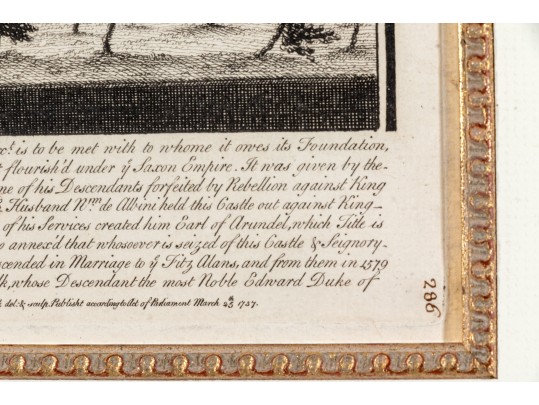 xt. is to be met with to whome it owes its Foundation,
flourish'd under ye Saxon Empire. It was given by the
ne of his Descendants forfeited by Rebellion against King
Husband Wm. de Albini held this Castle out against King
of his Services created him Earl of Arundel, which Title is
o annex'd that whosoever is seized of this Castle & Seignory
scended in Marriage to ye Fitz Alans, and from them in 1579
lk, whose Descendant the most Noble Edward Duke of
del: & sculp. Publisht according to Act of Parliament March 1737.
286